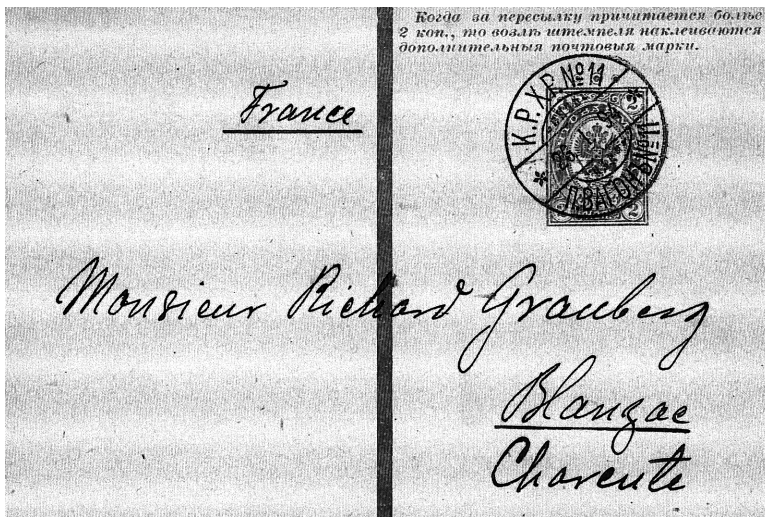 Когда за пересылку причитается болѣе
2 коп., то возлѣ штемпеля наклеиваются
дополнительныя почтовыя марки.
К.Р.ХР. №11
П.ВАГОНЪ
2
2 2
France
Monsieur Richard Grauberg
Blanzac
Charente